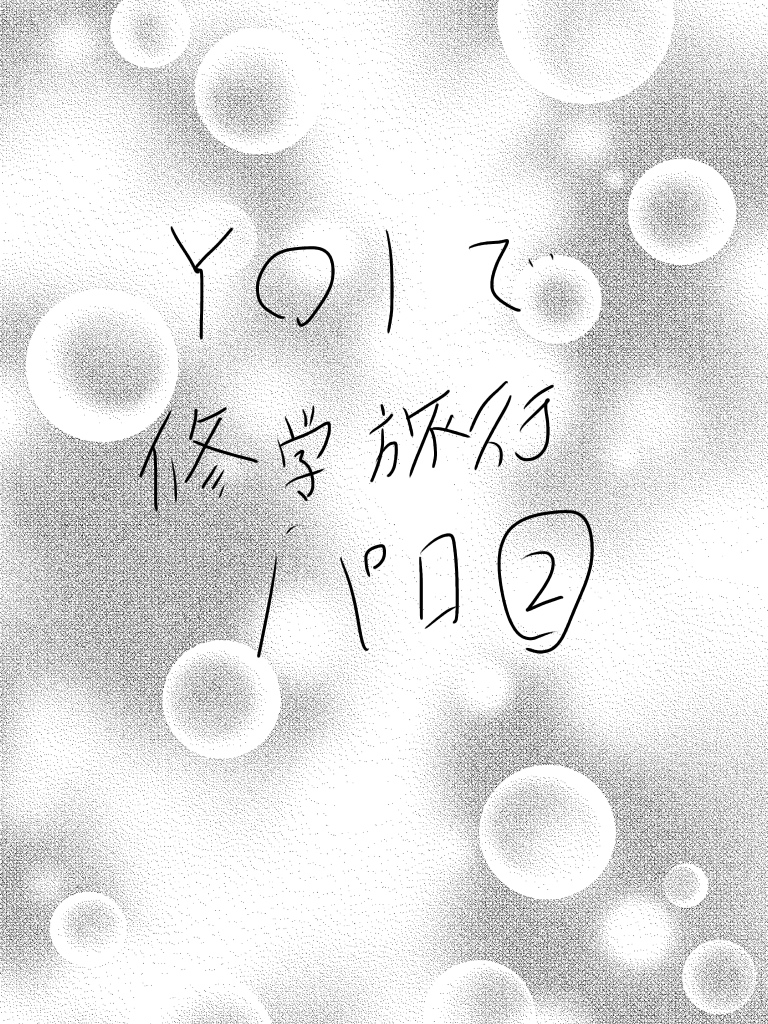 YOIで
修学旅行
パロ②